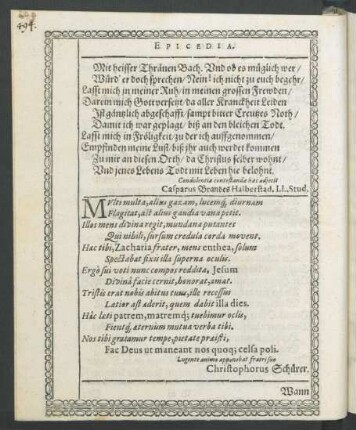 494.
EPICEDIA.
Mit heisser Thränen Bach. Vnd ob es müglich wer/
Würd' er doch sprechen/ Nein! ich nicht zu euch begehr/
Lasst mich in meiner Ruh/ in meinen grossen Frewden/
Darein mich Gott versetzt/ da aller Kranckheit Leiden
Ist gäntzlich abgeschafft/ sampt bitter Creutzes Noth/
Damit ich war geplagt/ biß an den bleichen Todt.
Lasst mich in Fröligkeit/ zu der ich auffgenommen/
Empfinden meine Lust/ biß ihr auch werdet kommen
Zu mir an diesen Orth/ da Christus selber wohnt/
Vnd jenes Lebens Todt mit Leben hie belohnt.
Condolentiæ contestandæ hæc adjecit
Casparus Brandes Halberstad. LL. Stud.
MUlti multa, alius gazam, lucemq́; diurnam
Flagitat, ast alius gaudia vana petit.
Illos mens divina regit, mundana putantes
Qui nihili, sursum credula corda movent.
Hac tibi, Zacharia frater, mens enthea, solum
Spectabat fixis illa superna oculis.
Ergò sui voti nunc compos reddita, Jesum
Divinâ facie cernit, honorat, amat.
Tristis erat nobis abitus tuus, ille recessus
Lætior ast aderit, quem dabit illa dies.
Hâc læti patrem, matremq́; tuebimur oclis,
Fientq́; æternùm mutua verba tibi.
Nos tibi gratamur tempe, pietate præisti,
Fac Deus ut maneant nos quoq; celsa poli.
Lugente animo apponebat fratri suo
Christophorus Schürer.
Wann